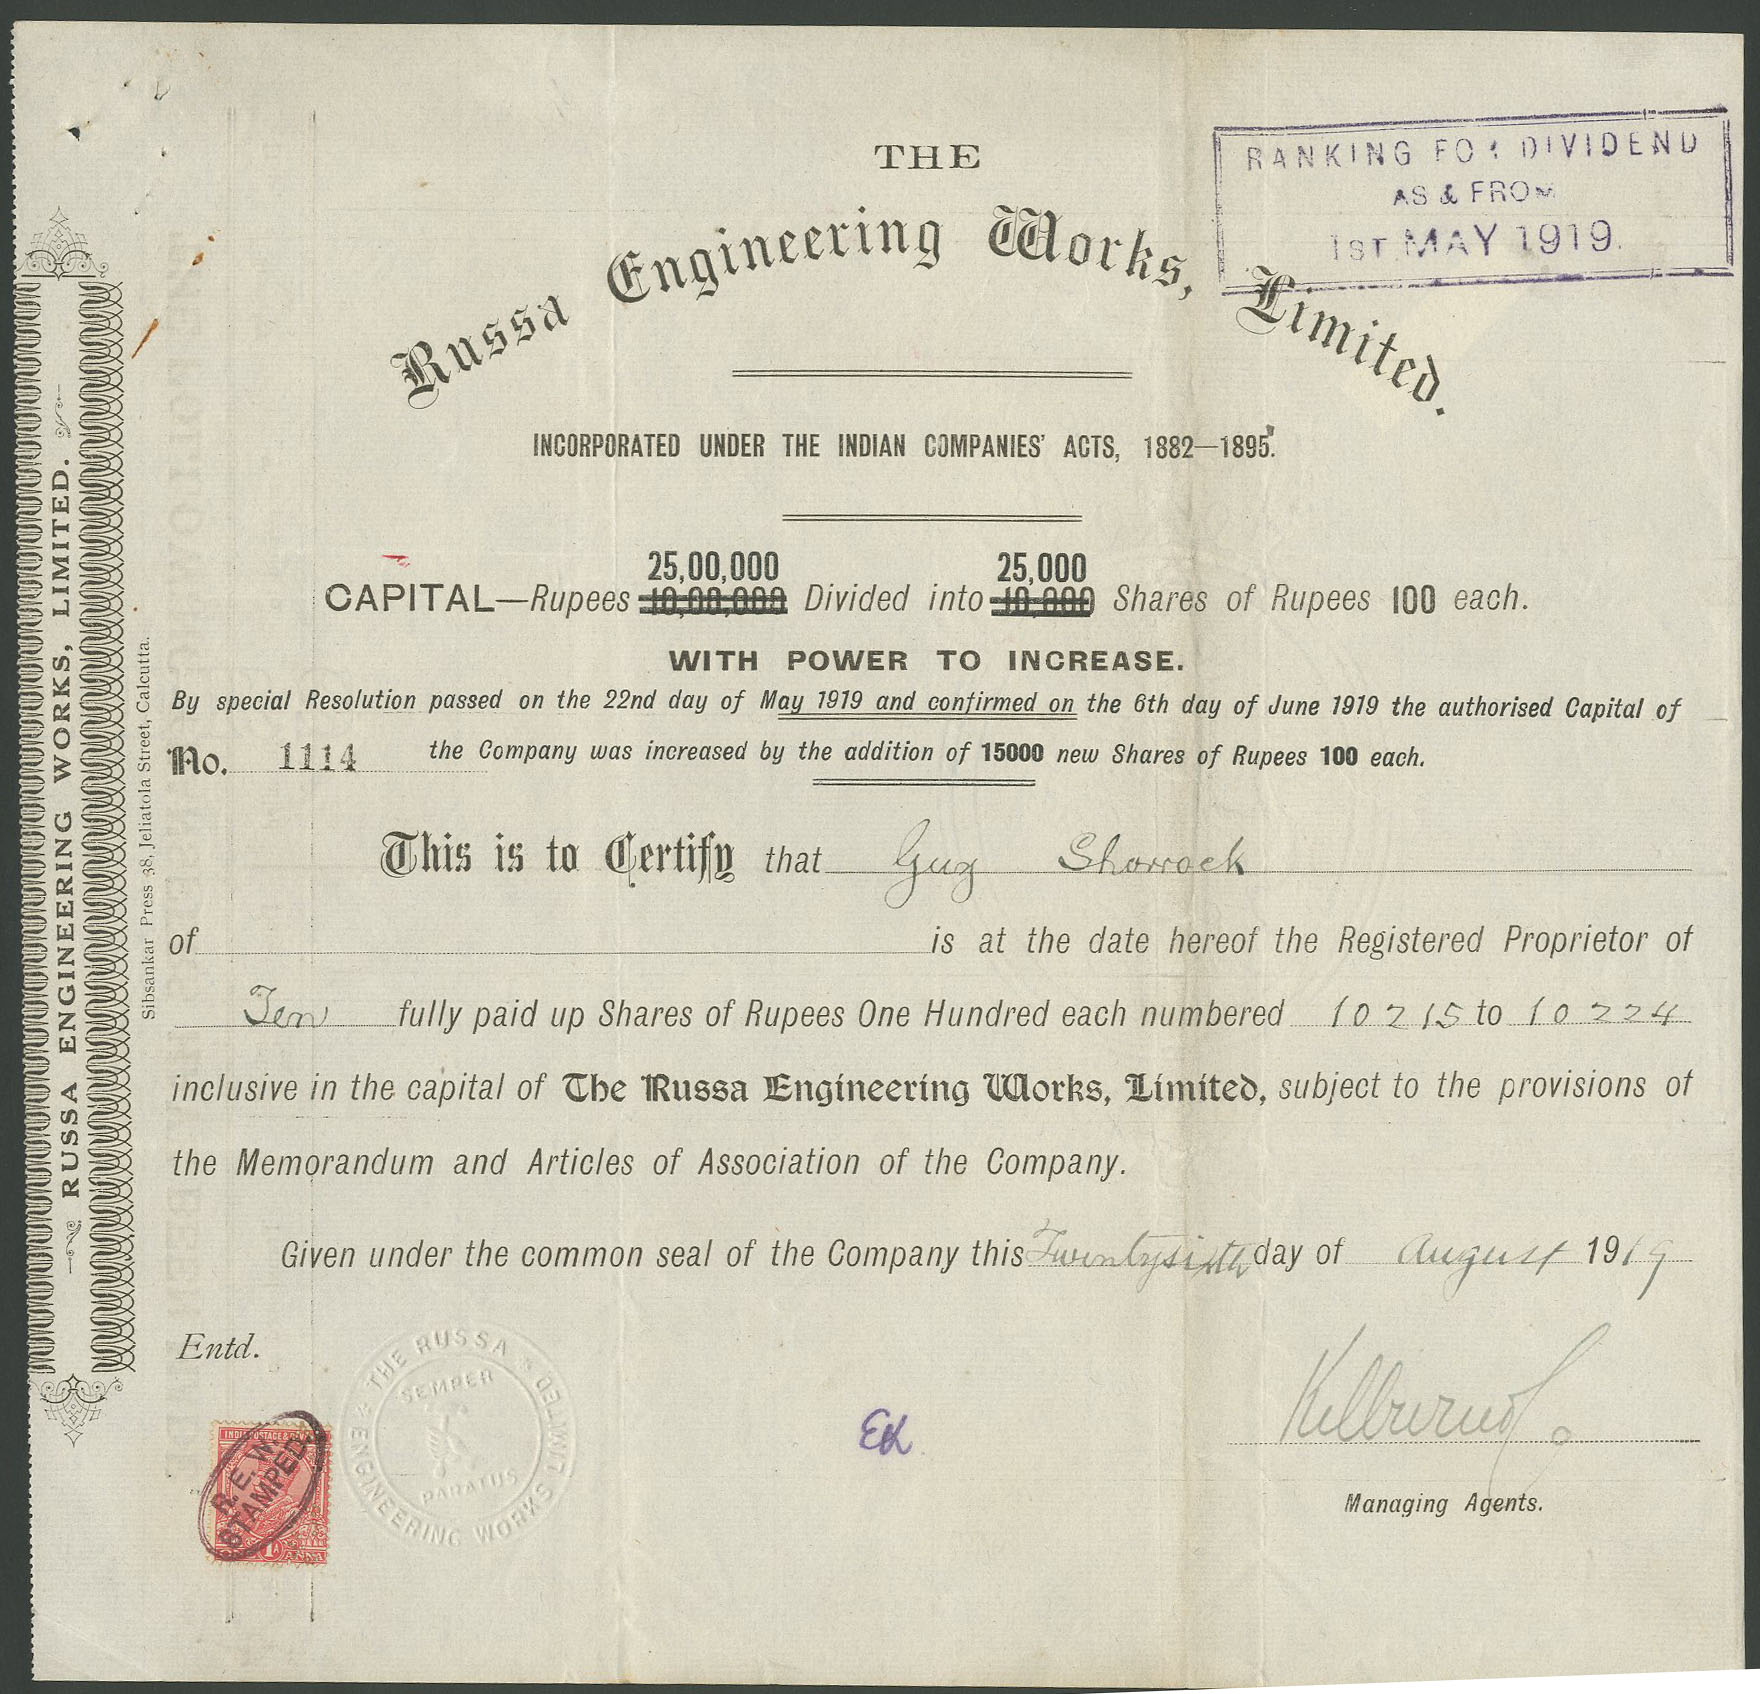 THE
Russa Engineering Works, Limited.
RANKING FOR DIVIDEND
AS & FROM
1ST MAY 1919.
INCORPORATED UNDER THE INDIAN COMPANIES' ACTS, 1882—1895.
25,00,000 25,000
CAPITAL—Rupees 10,00,000 Divided into 10,000 Shares of Rupees 100 each.
WITH POWER TO INCREASE.
By special Resolution passed on the 22nd day of May 1919 and confirmed on the 6th day of June 1919 the authorised Capital of
No. 1114 the Company was increased by the addition of 15000 new Shares of Rupees 100 each.
This is to Certify that Guy Shorrock
of is at the date hereof the Registered Proprietor of
Ten fully paid up Shares of Rupees One Hundred each numbered 10215 to 10224
inclusive in the capital of The Russa Engineering Works, Limited, subject to the provisions of
the Memorandum and Articles of Association of the Company.
Given under the common seal of the Company this Twentysixth day of August 1919
Entd.
THE RUSSA ENGINEERING WORKS LIMITED
SEMPER
PARATUS
INDIA POSTAGE &
R. E. W.
STAMPED
1A
ANNA
EK
Kilburn & Co
Managing Agents.
RUSSA ENGINEERING WORKS, LIMITED.
Sibsankar Press 38, Jeliatola Street, Calcutta.